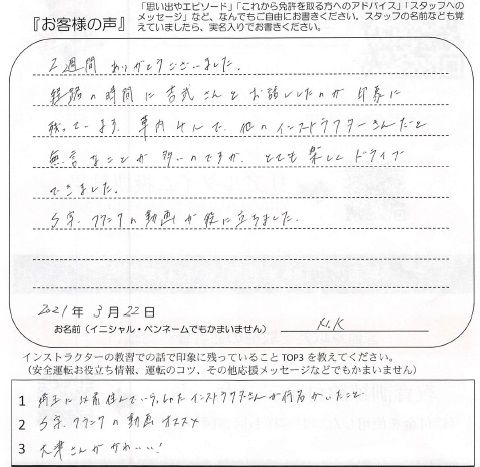 『お客様の声』
「思い出やエピソード」「これから免許を取る方へのアドバイス」「スタッフへの
メッセージ」など、なんでもご自由にお書きください。スタッフの名前なども覚
えていましたら、実名入りでお書きください。
2週間 ありがとうございました。
経路の時間に 吉武さんと お話ししたのが 印象に
残っています。車内 で、他のインストラクターさんだと
無言なことが 多いのですが、とても 楽しく ドライブ
できました。
S字、クランクの動画が 役に立ちました。
2021年 3月22日
お名前（イニシャル・ペンネームでもかまいません） K.K
インストラクターの教習での話で印象に残っていること TOP3 を教えてください。
（安全運転お役立ち情報、運転のコツ、その他応援メッセージなどでもかまいません）
1 埼玉に以前住んでいらっしゃったインストラクターさんが何名かいたこと
2 S字、クランクの動画 オススメ
3 大津さんがかわいい！